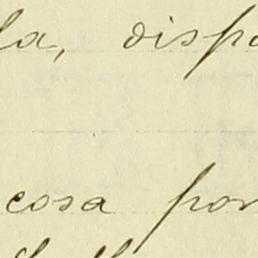 la, dispo
cosa por